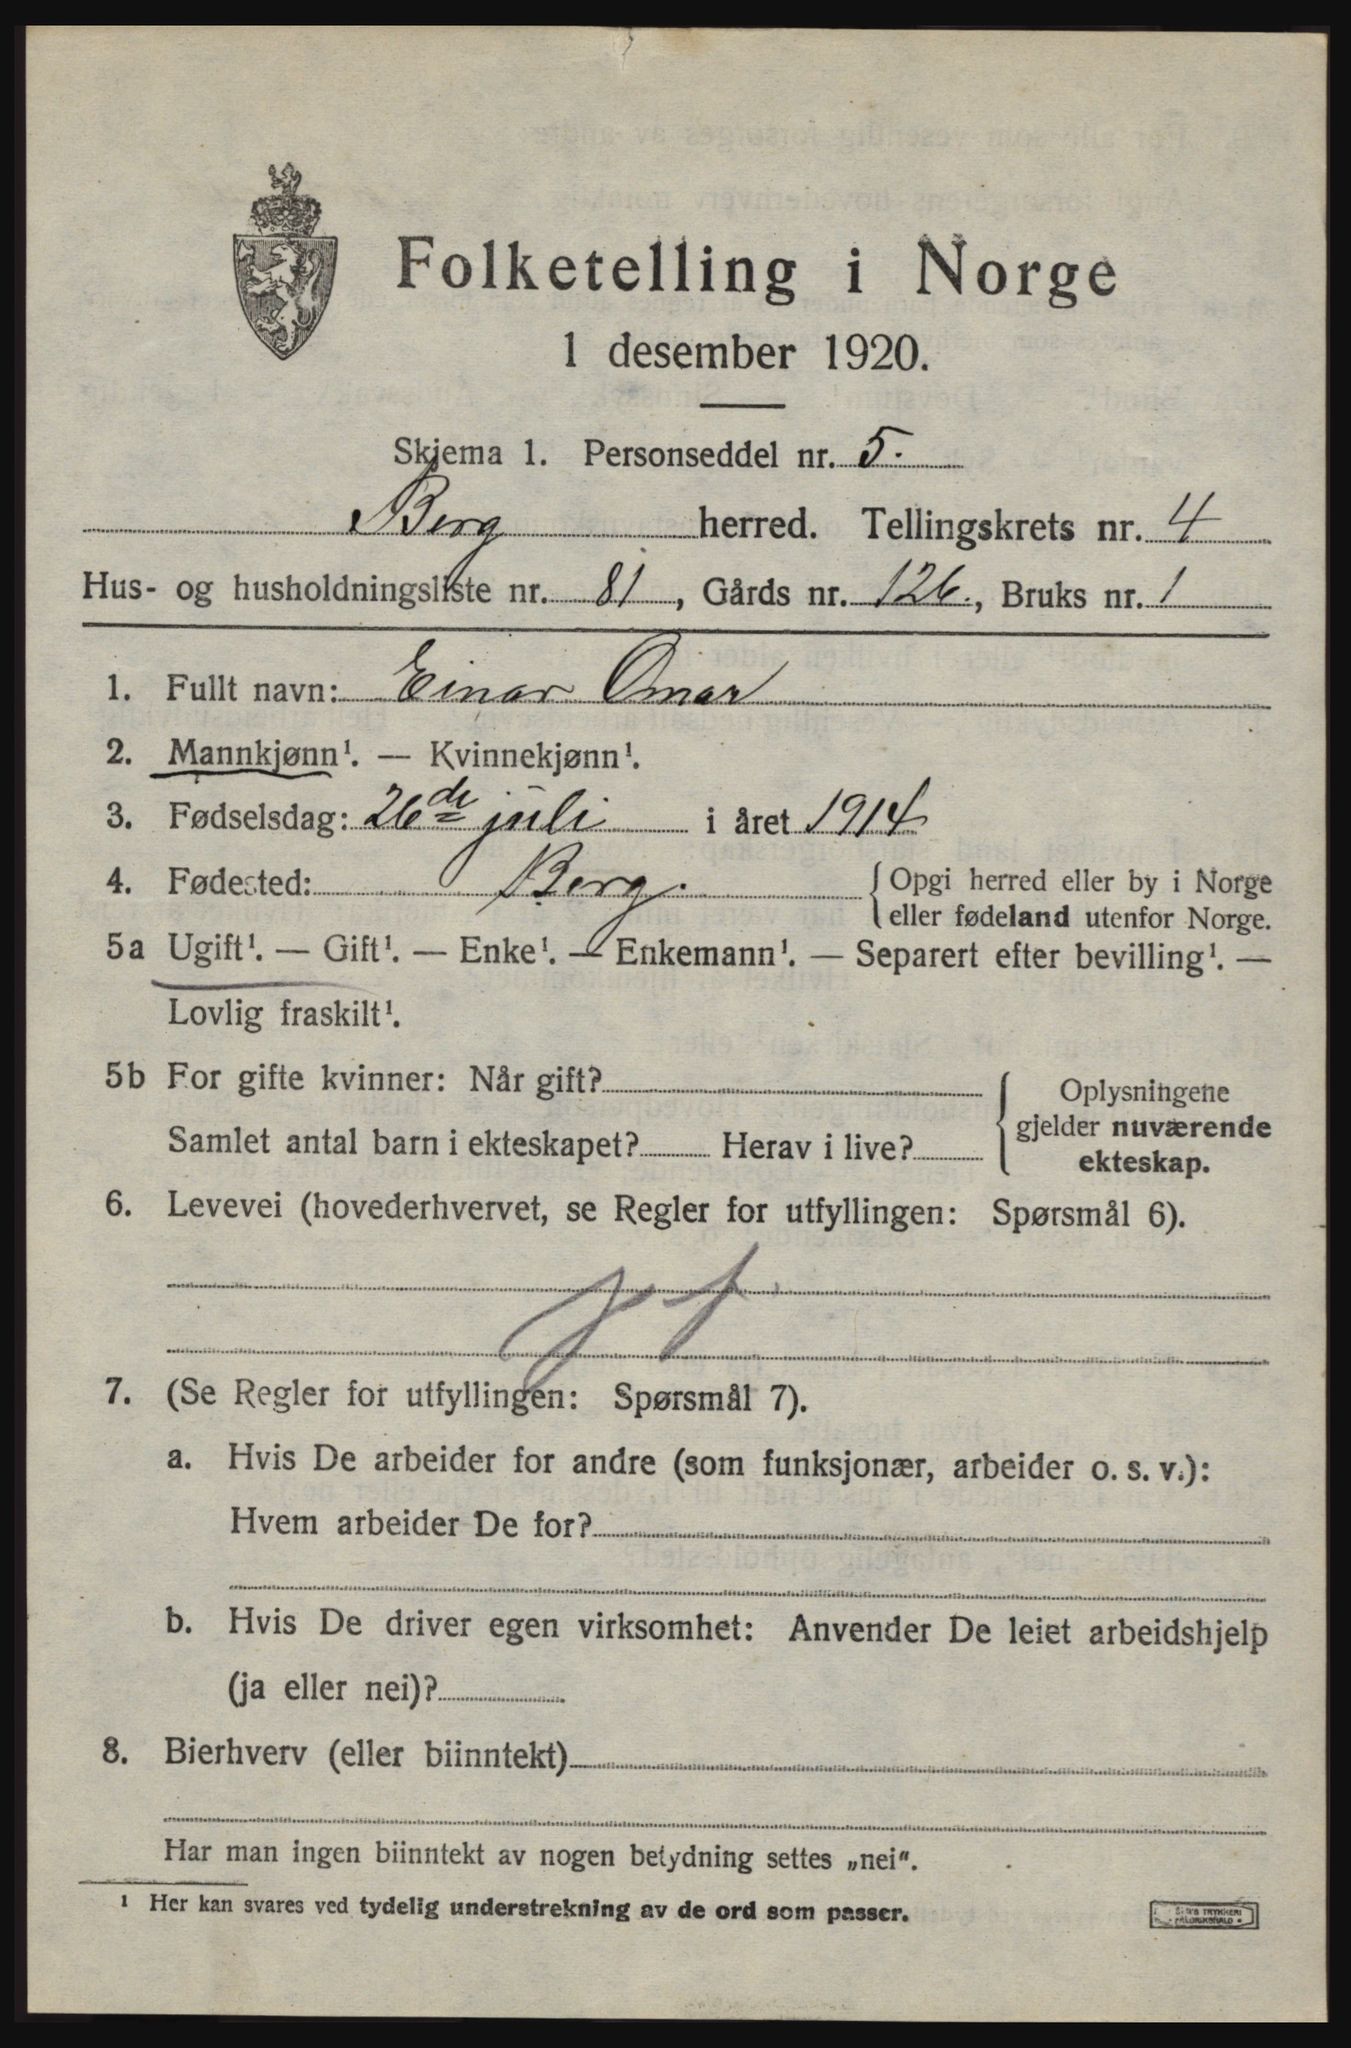 Folketelling i Norge
1 desember 1920.
Skjema 1. Personseddel nr. 5.
Berg herred. Tellingskrets nr. 4
Hus- og husholdningsliste nr. 81, Gårds nr. 126., Bruks nr. 1
1. Fullt navn: Einar Omar
2. Mannkjønn¹. — Kvinnekjønn¹.
3. Fødselsdag: 26de juli i året 1914
4. Fødested: Berg. { Opgi herred eller by i Norge
eller fødeland utenfor Norge.
5a Ugift¹. — Gift¹. — Enke¹. — Enkemann¹. — Separert efter bevilling¹. —
Lovlig fraskilt¹.
5b For gifte kvinner: Når gift?
Samlet antal barn i ekteskapet? Herav i live?
{ Oplysningene
gjelder nuværende
ekteskap.
6. Levevei (hovederhvervet, se Regler for utfyllingen: Spørsmål 6).
7. (Se Regler for utfyllingen: Spørsmål 7).
a. Hvis De arbeider for andre (som funksjonær, arbeider o. s. v.):
Hvem arbeider De for?
b. Hvis De driver egen virksomhet: Anvender De leiet arbeidshjelp
(ja eller nei)?
8. Bierhverv (eller biinntekt)
Har man ingen biinntekt av nogen betydning settes „nei“.
¹ Her kan svares ved tydelig understrekning av de ord som passer.